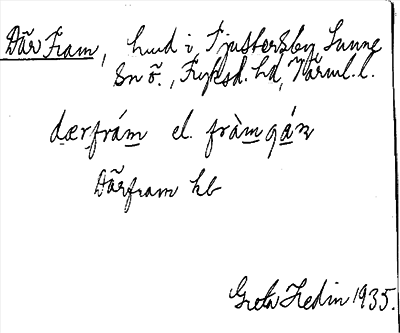 Där Fram, hmd i Tjustersby, Sunne
Sn ö., Fryksd. hd, Värml. l.
dærfrám el. fràmgán
Därfram hb
Greta Hedin 1935.